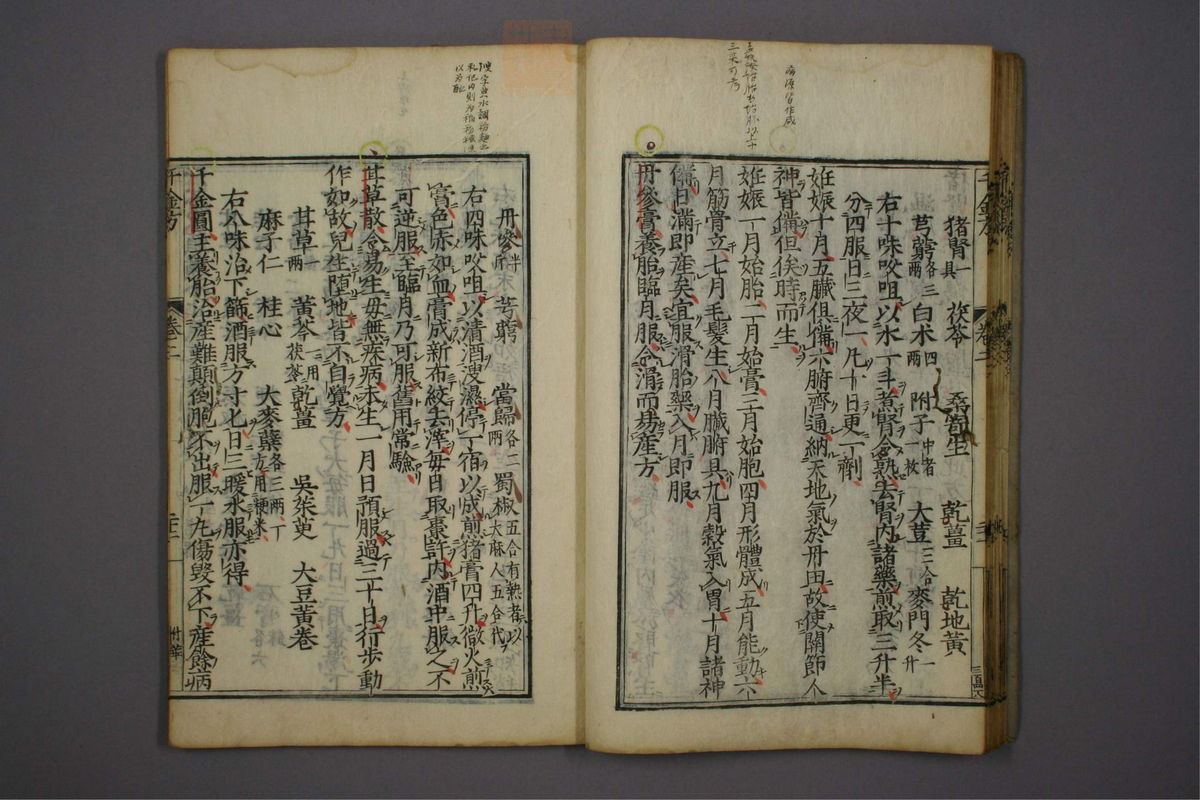 猪腎一具 茯苓 桑寄生 乾薑 乾地黃
芎藭各三兩 白朮四兩 附子中者一枚 大荳三合 麥門冬一升
右十味㕮咀以水一斗煮腎令熟去腎內諸藥煎取三升半
分四服日三夜一凡十日更一劑
妊娠十月五臟俱備六腑齊通納天地氣於丹田故使關節人
神皆備但俟時而生
妊娠一月始胎二月始膏三月始胞四月形體成五月能動六
月筋骨立七月毛髮生八月臟腑具九月穀氣入胃十月諸神
備日滿即產矣宜服滑胎藥入月即服
丹參膏養胎臨月服令滑而易產方
千金方 卷二
丹參半斤 芎藭 當歸各二兩 蜀椒五合有熱者以大麻人五合代
右四味㕮咀以清酒溲濕停一宿以成煎猪膏四升微火煎
膏色赤如血膏成新布絞去滓每日取棗許內酒中服之不
可逆服至臨月乃可服舊用常驗
甘草散令易生母無疾病未生一月日預服過三十日行步動
作如故兒生墮地皆不自覺方
甘草一兩 黃芩一用茯苓 乾薑 吳茱萸 大豆黃卷
麻子仁 桂心 大麥蘗各三兩一方用粳米
右八味治下篩酒服方寸匕日三暖水服亦得
千金圓主養胎治產難顛倒胞不出服一丸傷毀不下產餘病
千金方 卷二